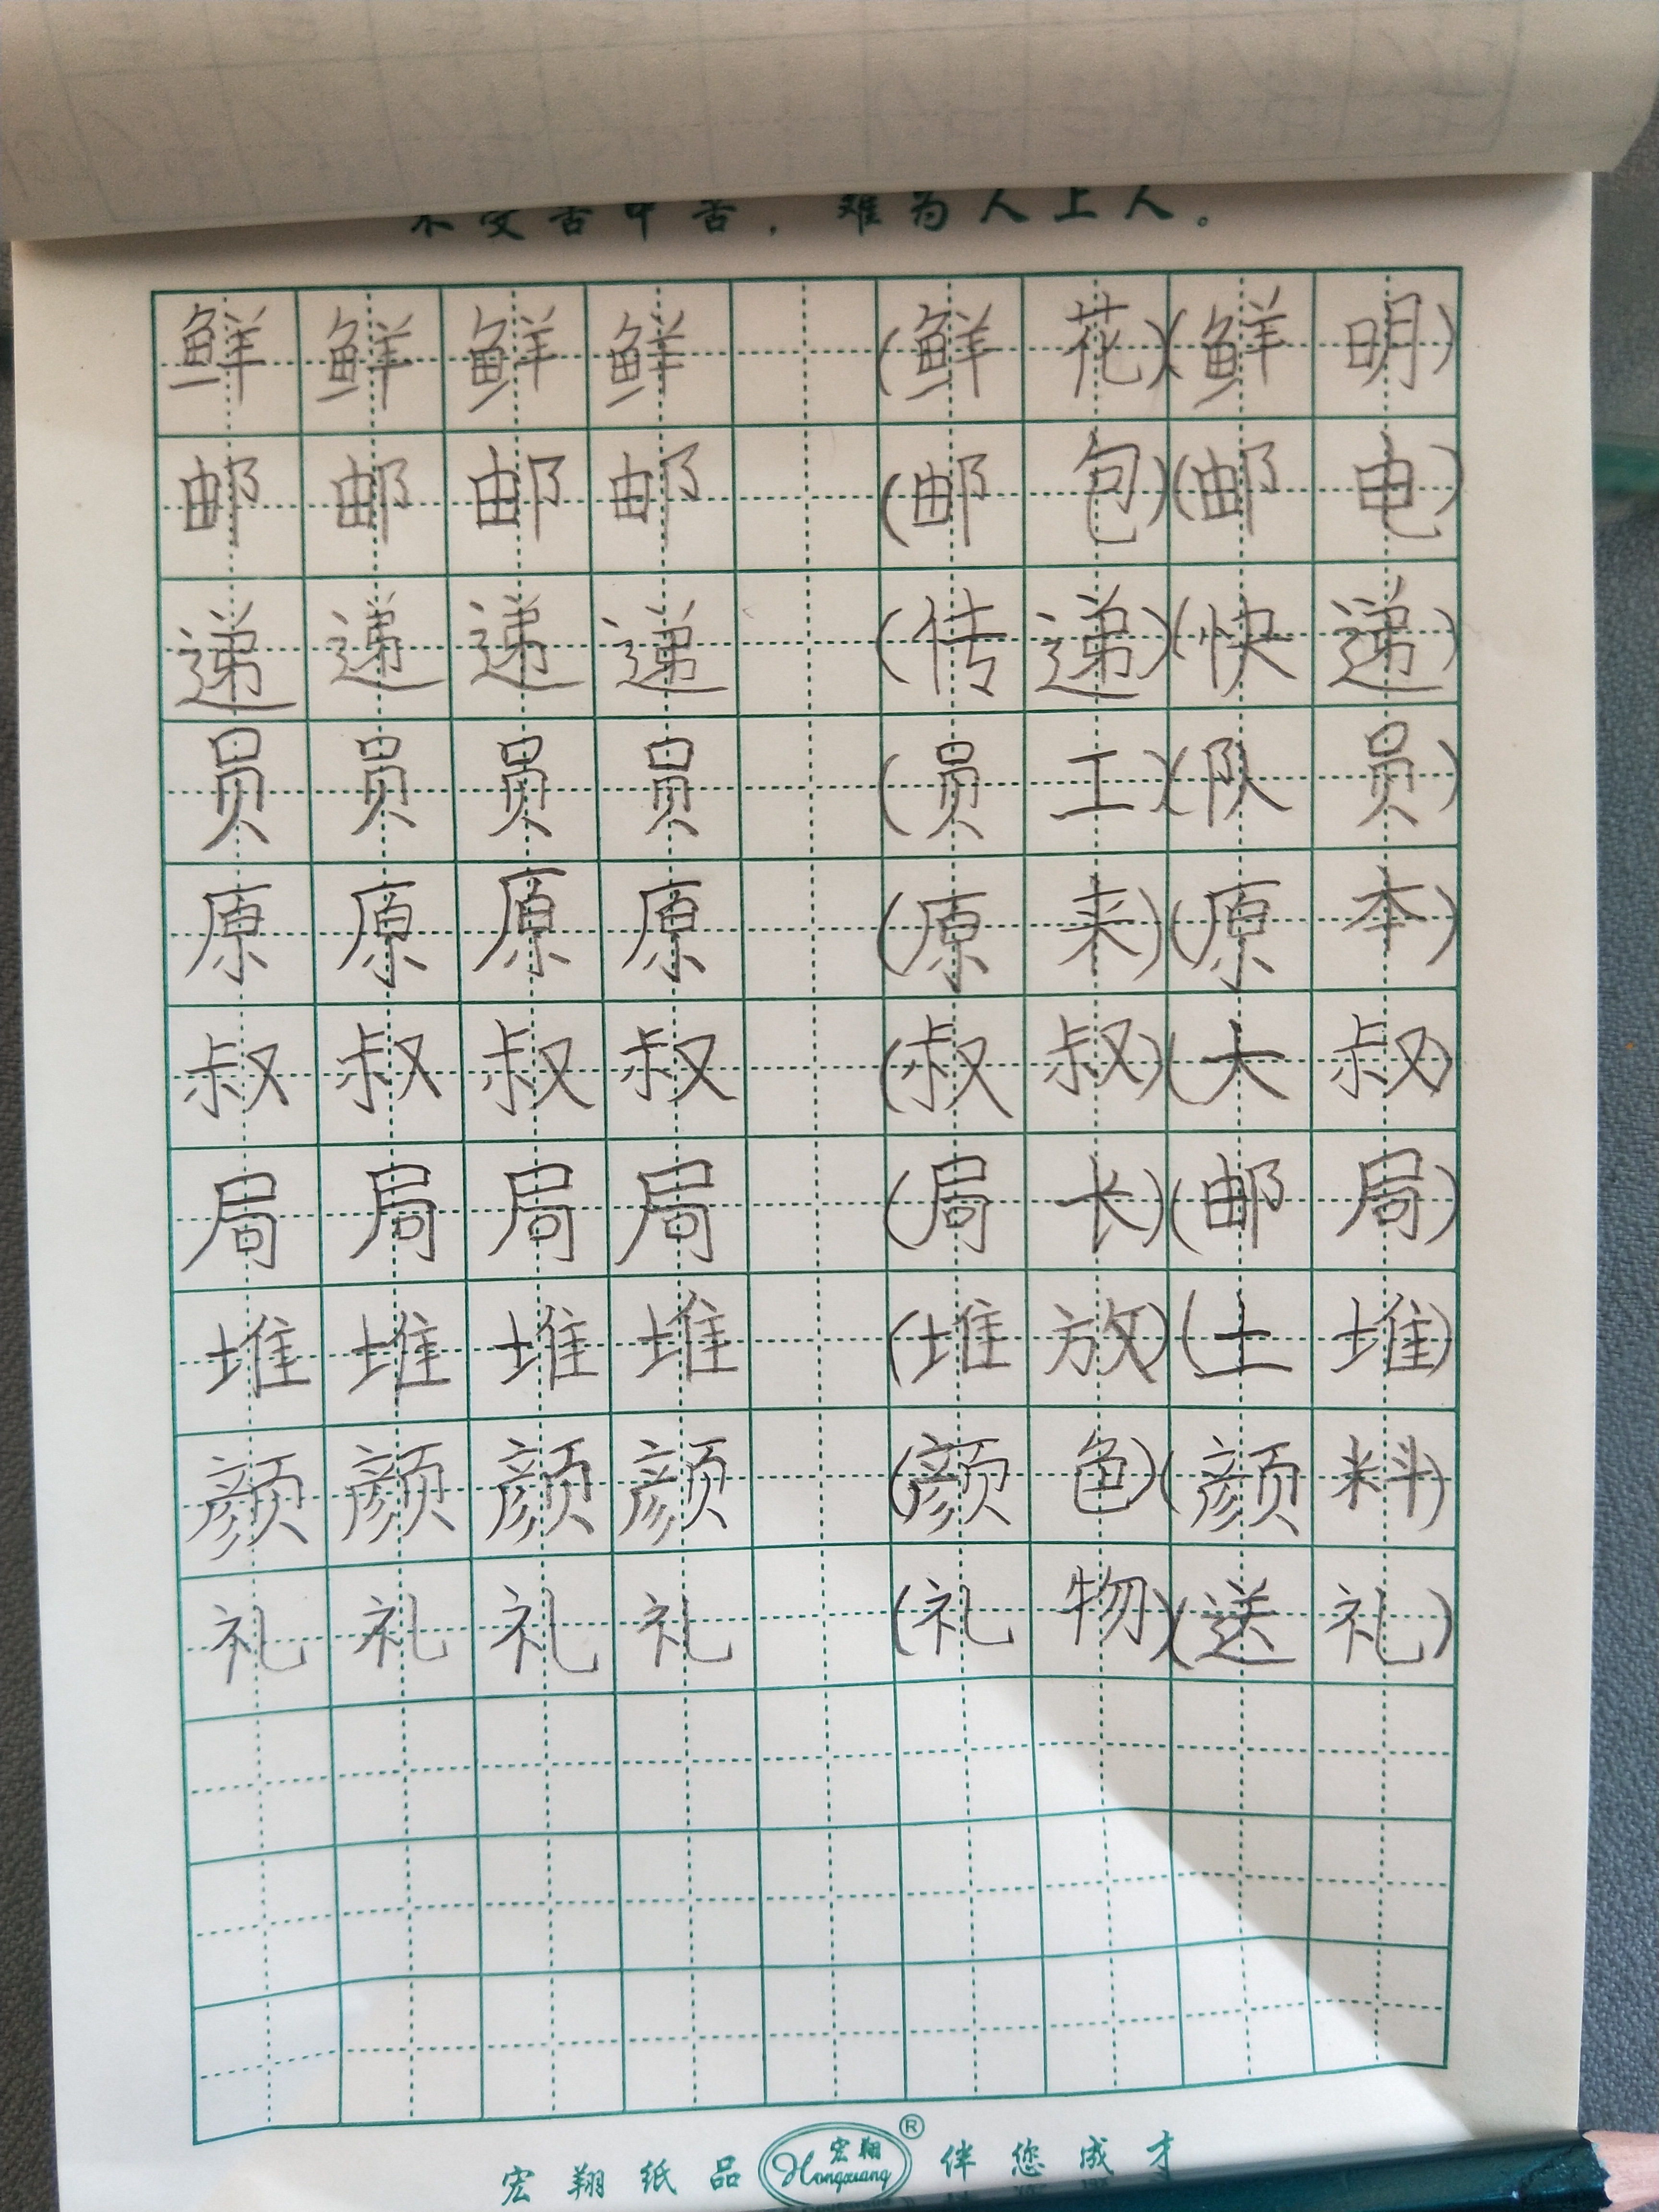 不受苦中苦，难为人上人。
鲜 鲜 鲜 鲜 (鲜花)(鲜明)
邮 邮 邮 邮 (邮包)(邮电)
递 递 递 递 (传递)(快递)
员 员 员 员 (员工)(队员)
原 原 原 原 (原来)(原本)
叔 叔 叔 叔 (叔叔)(大叔)
局 局 局 局 (局长)(邮局)
堆 堆 堆 堆 (堆放)(土堆)
颜 颜 颜 颜 (颜色)(颜料)
礼 礼 礼 礼 (礼物)(送礼)
宏翔纸品 宏翔 Hongxiang ® 伴您成才